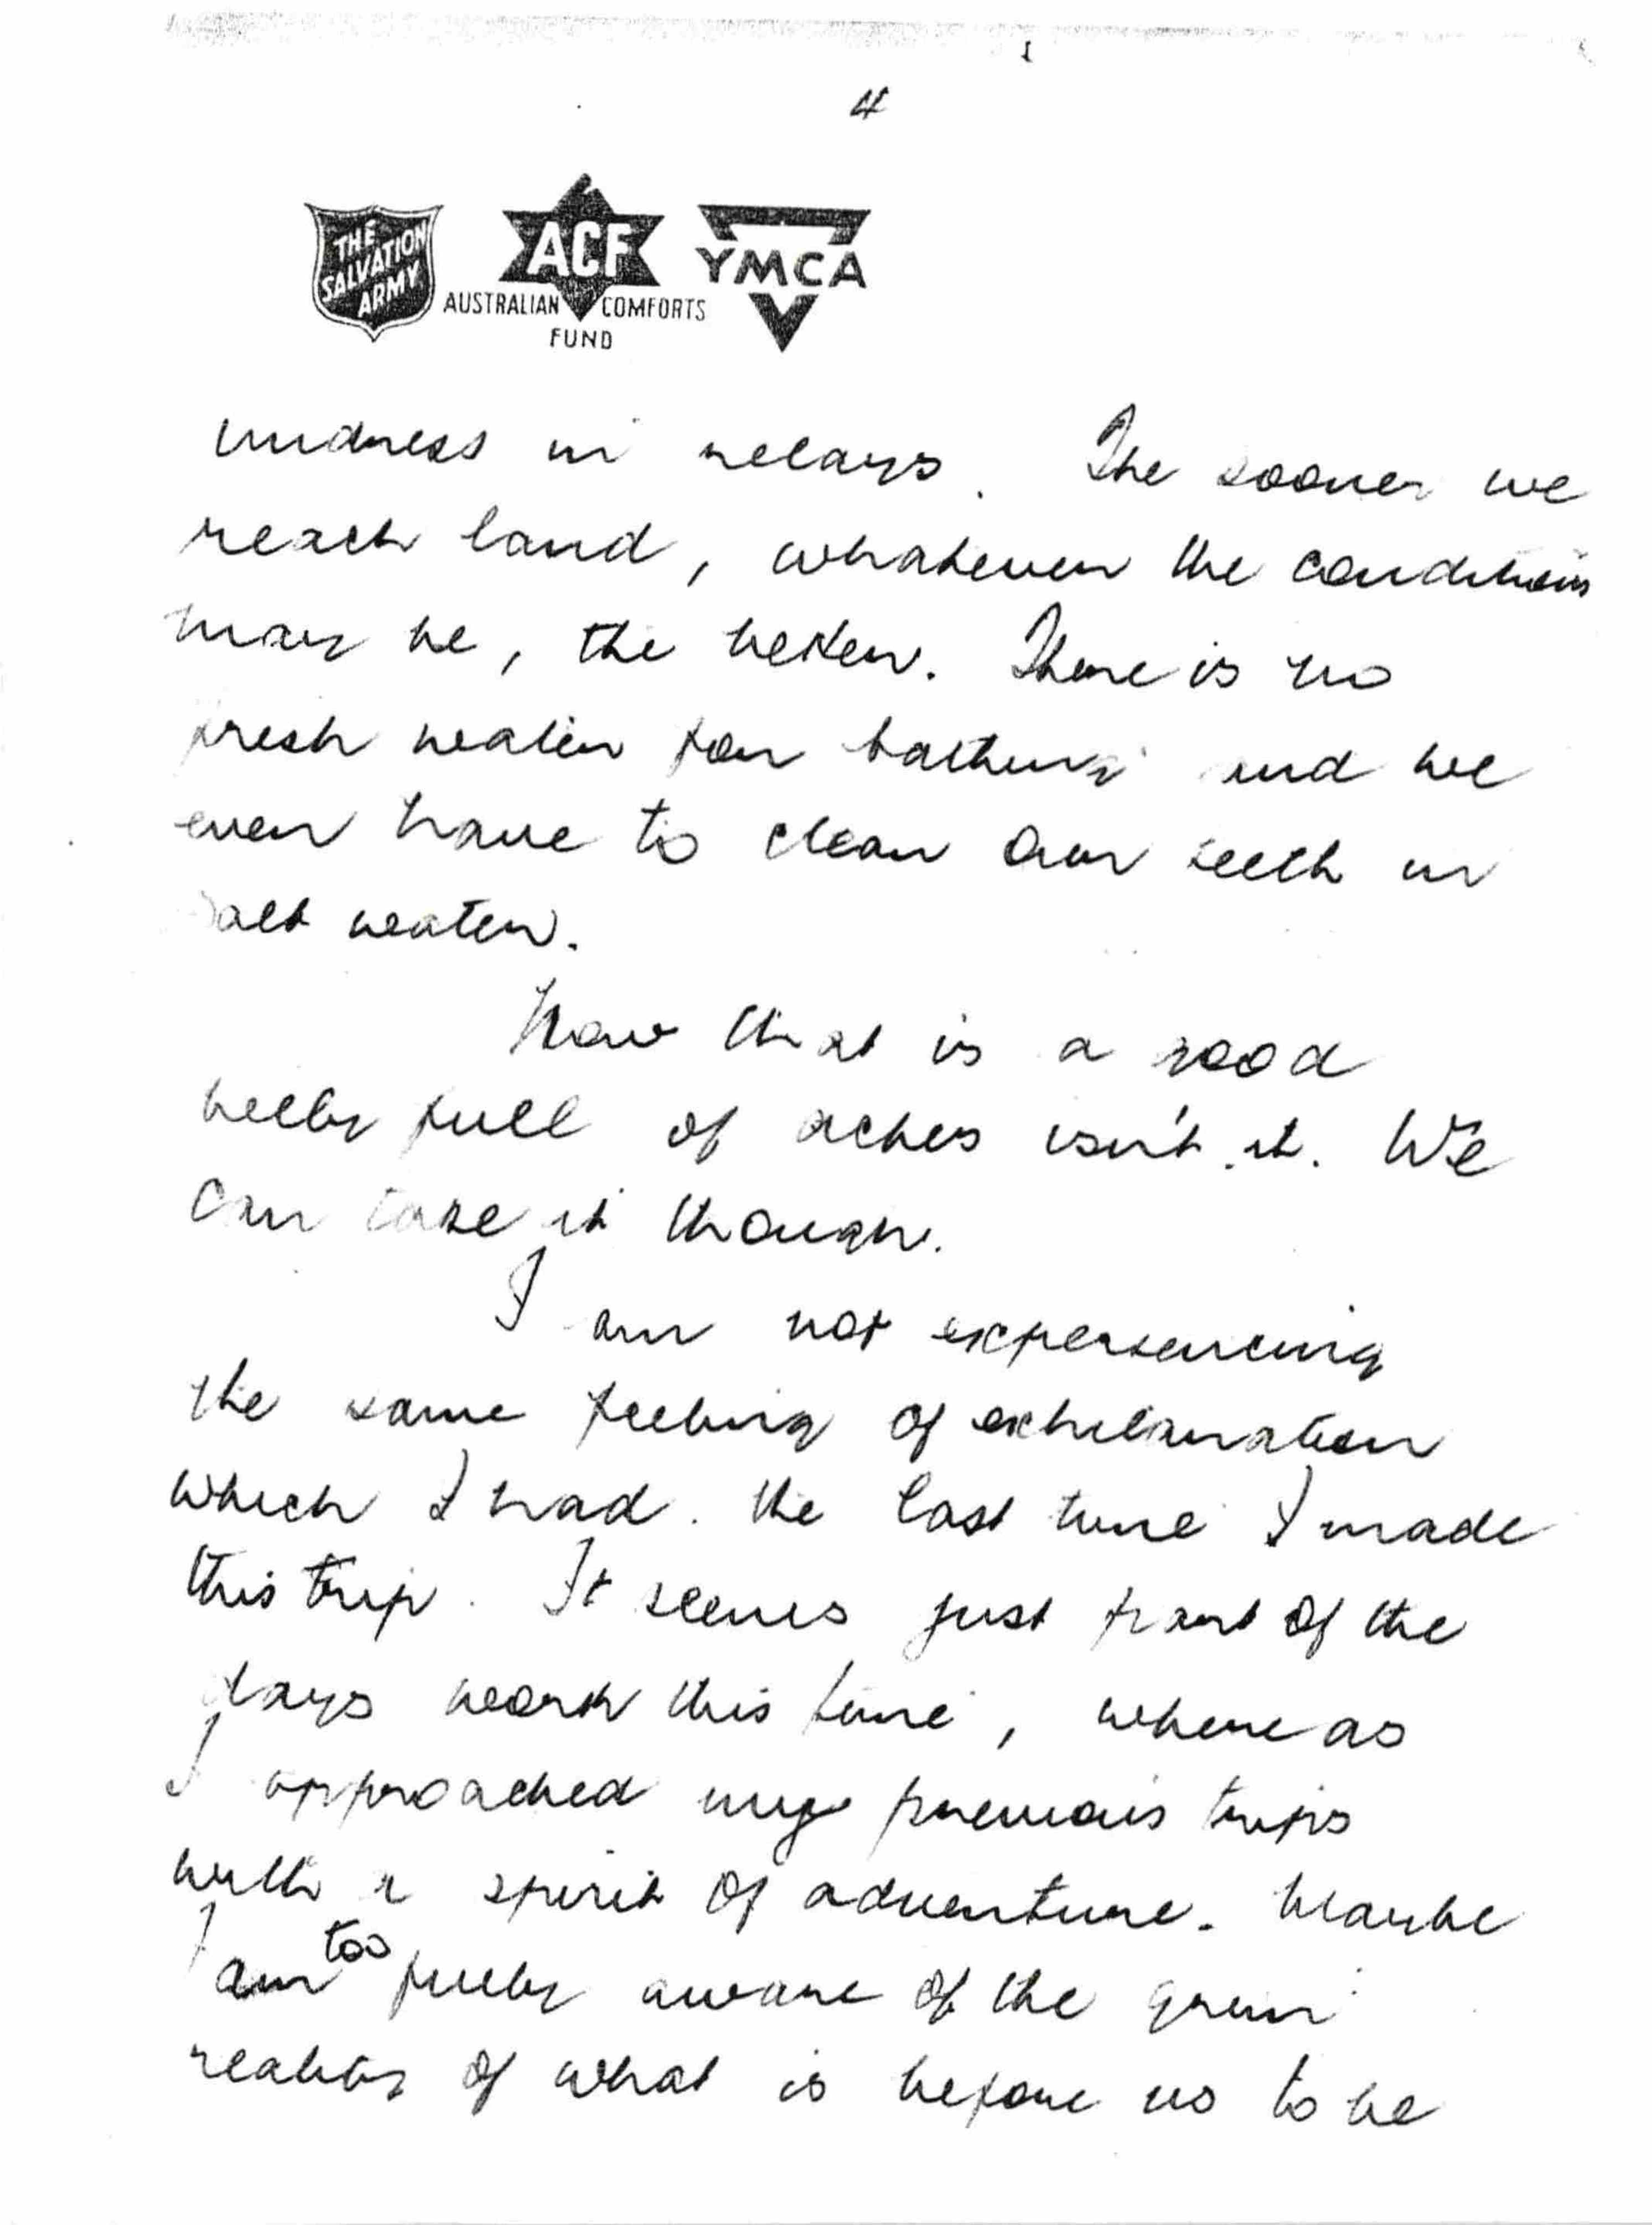 4
THE SALVATION ARMY
ACF
AUSTRALIAN COMFORTS FUND
YMCA
undress in relays. The sooner we
reach land, whatever the conditions
may be, the better. There is no
fresh water for bathing and we
even have to clean our teeth in
salt water.
Now that is a good
belly full of aches isn't it. We
can take it though.
I am not experiencing
the same feeling of exhilaration
which I had the last time I made
this trip. It seems just part of the
days work this time, whereas
I approached my previous trips
with a spirit of adventure. Maybe
I am too fully aware of the grim
reality of what is before us to be